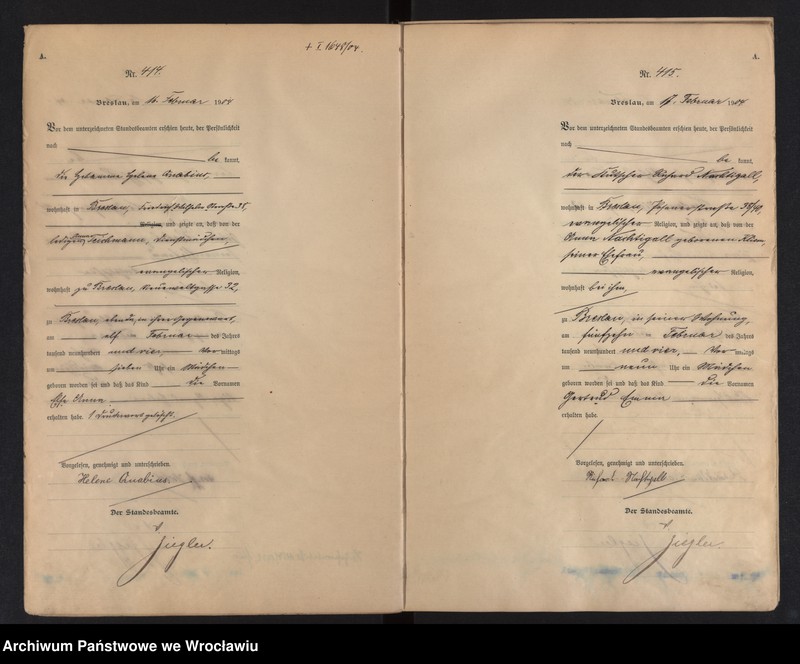 A.
+ I 1648/04.
Nr. 414.
Breslau, am 16. Februar 1904
Vor dem unterzeichneten Standesbeamten erschien heute, der Persönlichkeit
nach be kannt,
die Hebamme Helene Anabius,
wohnhaft in Breslau, Friedrich Wilhelm Straße
Religion, und zeigte an, daß von der
ledigen Teichmann, Dienstmädchen,
evangelischer Religion,
wohnhaft zu Breslau, Neueweltgasse 32,
zu Breslau, ebenda, in ihrer Gegenwart,
am elf ten Februar des Jahres
tausend neunhundert und vier, Vor mittags
um sieben Uhr ein Mädchen
geboren worden sei und daß das Kind die Vornamen
Else Anna
erhalten habe. 1 Druckwort gelöscht.
Vorgelesen, genehmigt und unterschrieben.
Helene Anabius.
Der Standesbeamte.
Ziegler.
A.
Nr. 415.
Breslau, am 17. Februar 1904
Vor dem unterzeichneten Standesbeamten erschien heute, der Persönlichkeit
nach be kannt,
der Kutscher Richard Nachtigall,
wohnhaft in Breslau, Posenerstraße
evangelischer Religion, und zeigte an, daß von der
Anna Nachtigall geborenen
seiner Ehefrau,
evangelischer Religion,
wohnhaft bei ihm,
zu Breslau, in seiner Wohnung,
am fünfzehn ten Februar des Jahres
tausend neunhundert und vier, Vor mittags
um neun Uhr ein Mädchen
geboren worden sei und daß das Kind die Vornamen
Gertrud Emma
erhalten habe.
Vorgelesen, genehmigt und unterschrieben.
Richard Nachtigall
Der Standesbeamte.
Ziegler.
Archiwum Państwowe we Wrocławiu